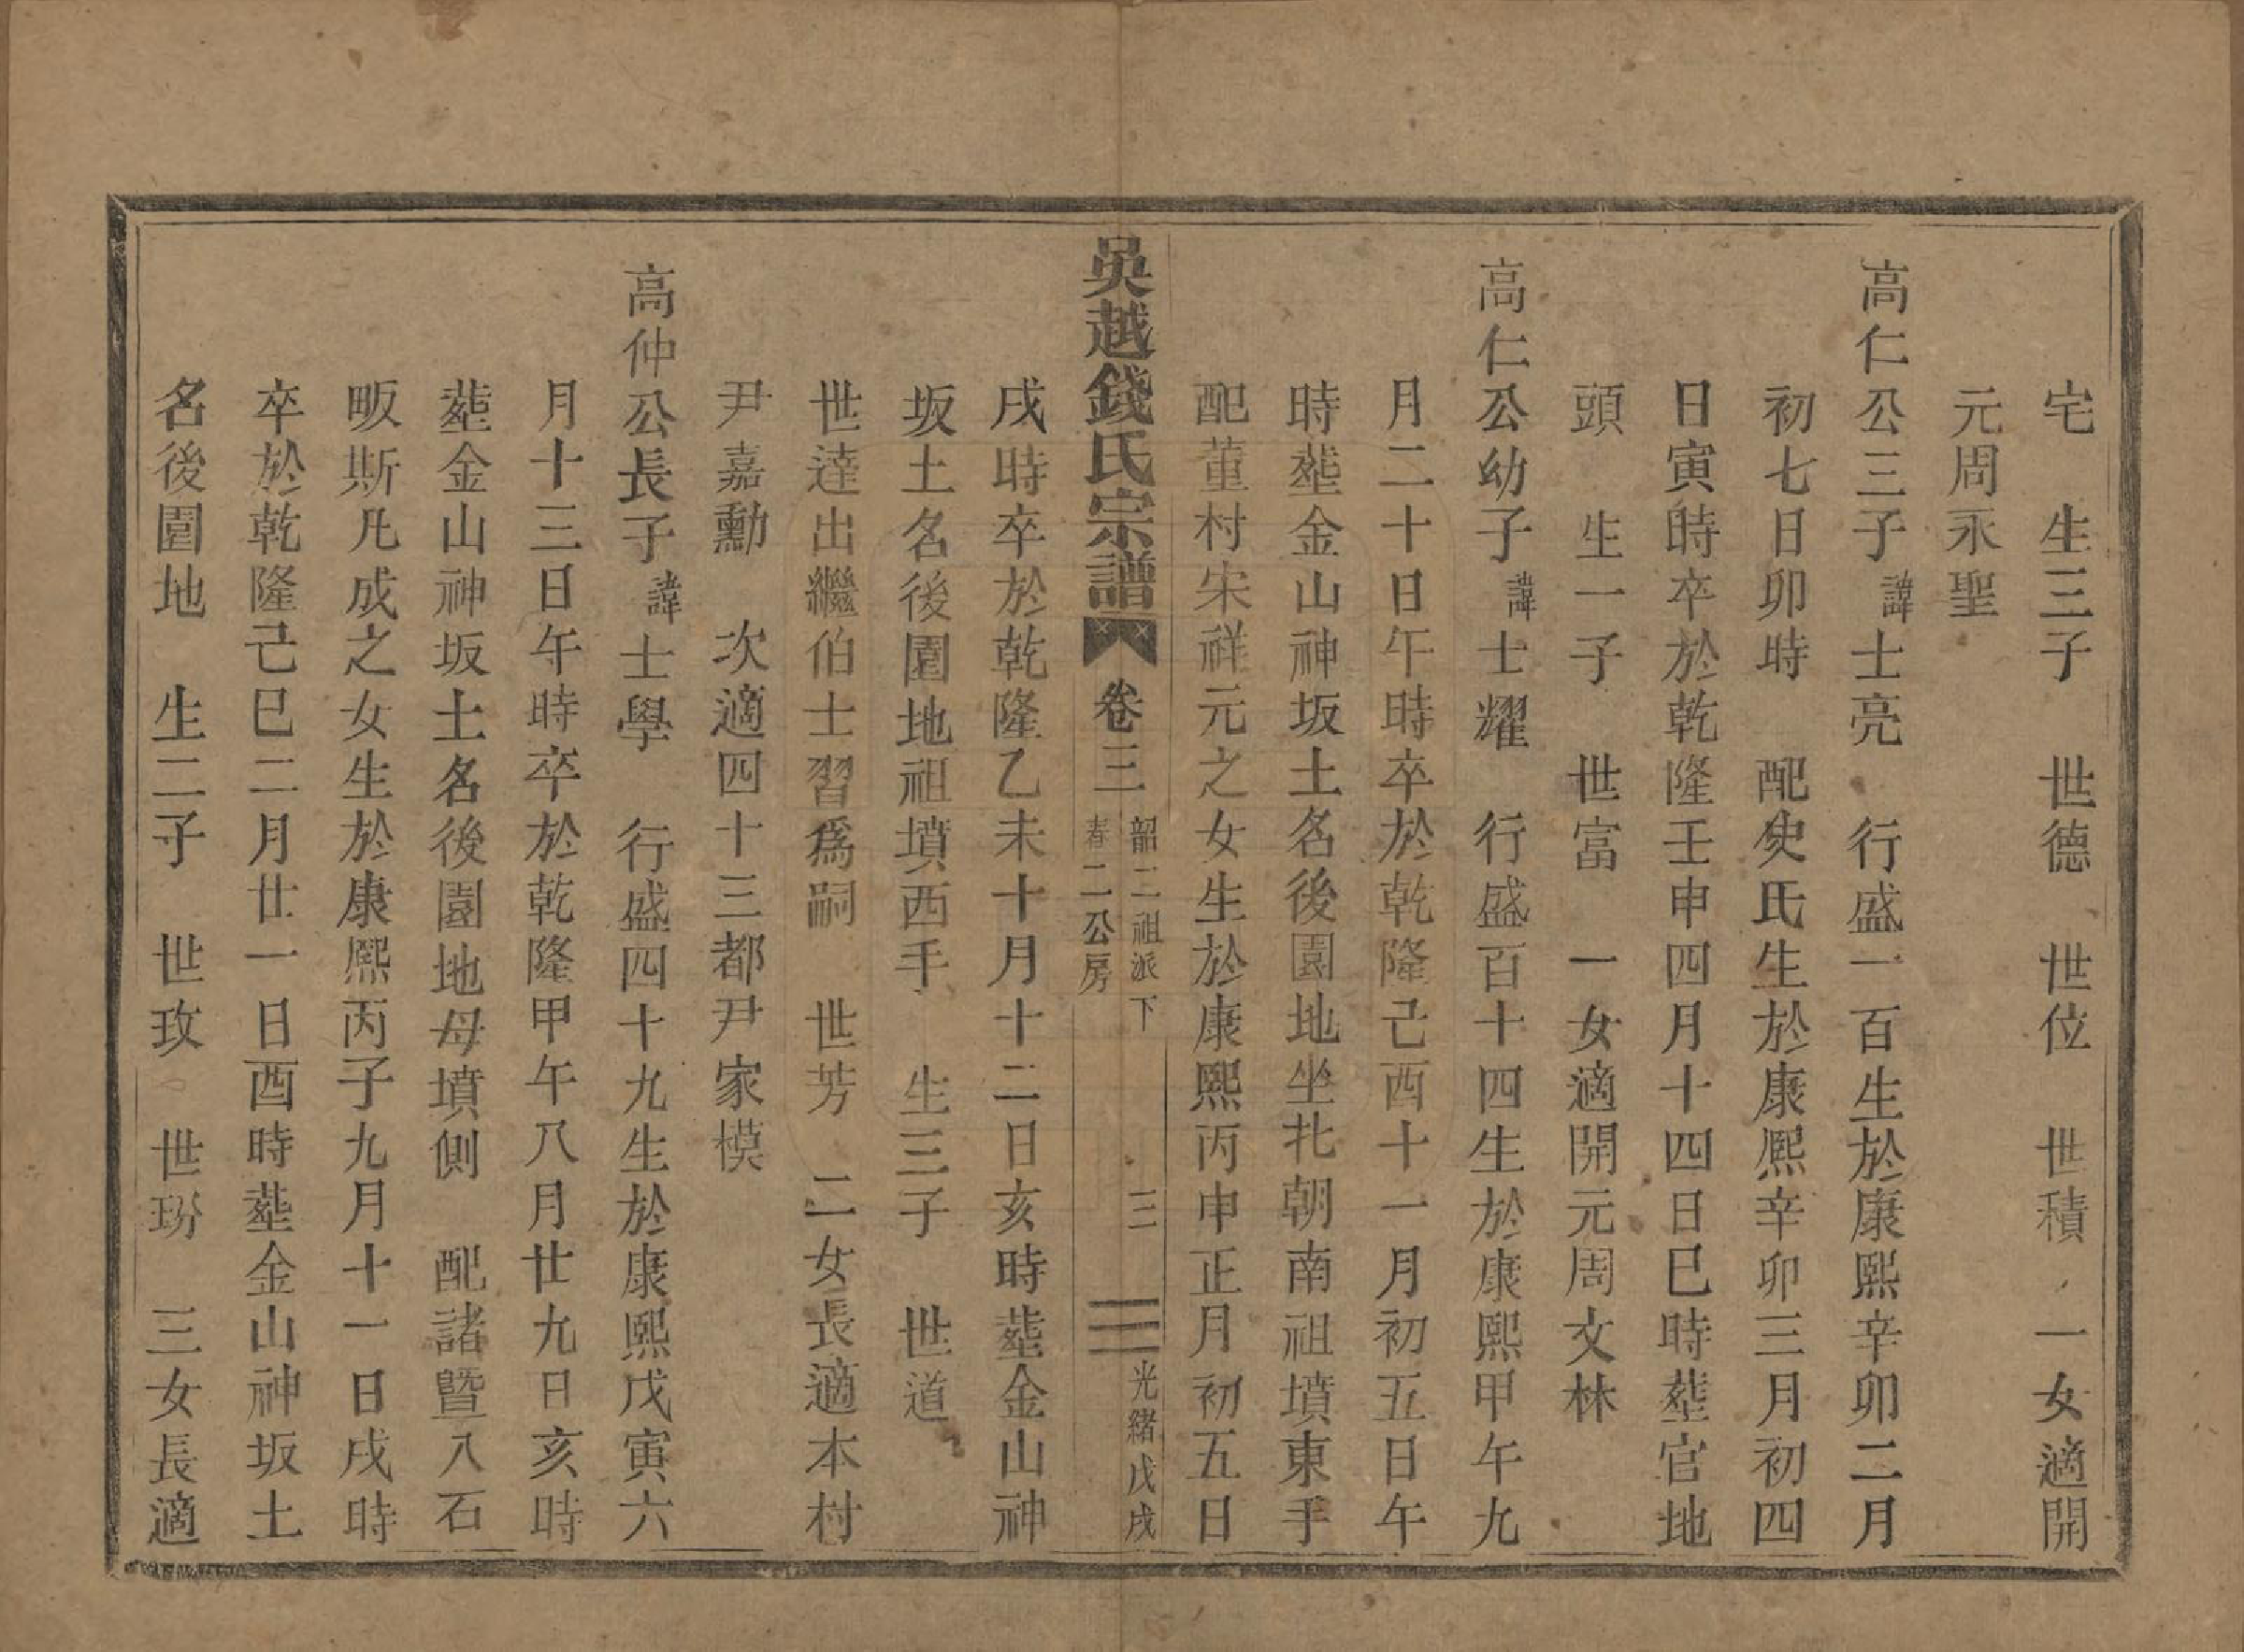 宅　生三子　世德　世位　世積　一女適開
元周永聖
高仁公三子諱士亮　行盛一百生於康熙辛卯二月
初七日卯時　配史氏生於康熙辛卯三月初四
日寅時卒於乾隆壬申四月十四日巳時塟官地
頭　生一子　世富　一女適開元周文林
高仁公幼子諱士耀　行盛百十四生於康熙甲午九
月二十日午時卒於乾隆己酉十一月初五日午
時塟金山神坂土名後園地坐北朝南祖墳東手
配董村宋祥元之女生於康熙丙申正月初五日
吳越錢氏宗譜　卷三　韶二祖派下　春二公房　三　光緒戊戌
戌時卒於乾隆乙未十月十二日亥時塟金山神
坂土名後園地祖墳西手　生三子　世道
世達出繼伯士習爲嗣　世芳　二女長適本村
尹嘉勳　次適四十三都尹家模
高仲公長子諱士學　行盛四十九生於康熙戊寅六
月十三日午時卒於乾隆甲午八月廿九日亥時
塟金山神坂土名後園地母墳側　配諸暨八石
畈斯凡成之女生於康熙丙子九月十一日戌時
卒於乾隆己巳二月廿一日酉時塟金山神坂土
名後園地　生二子　世玫　世玢　三女長適